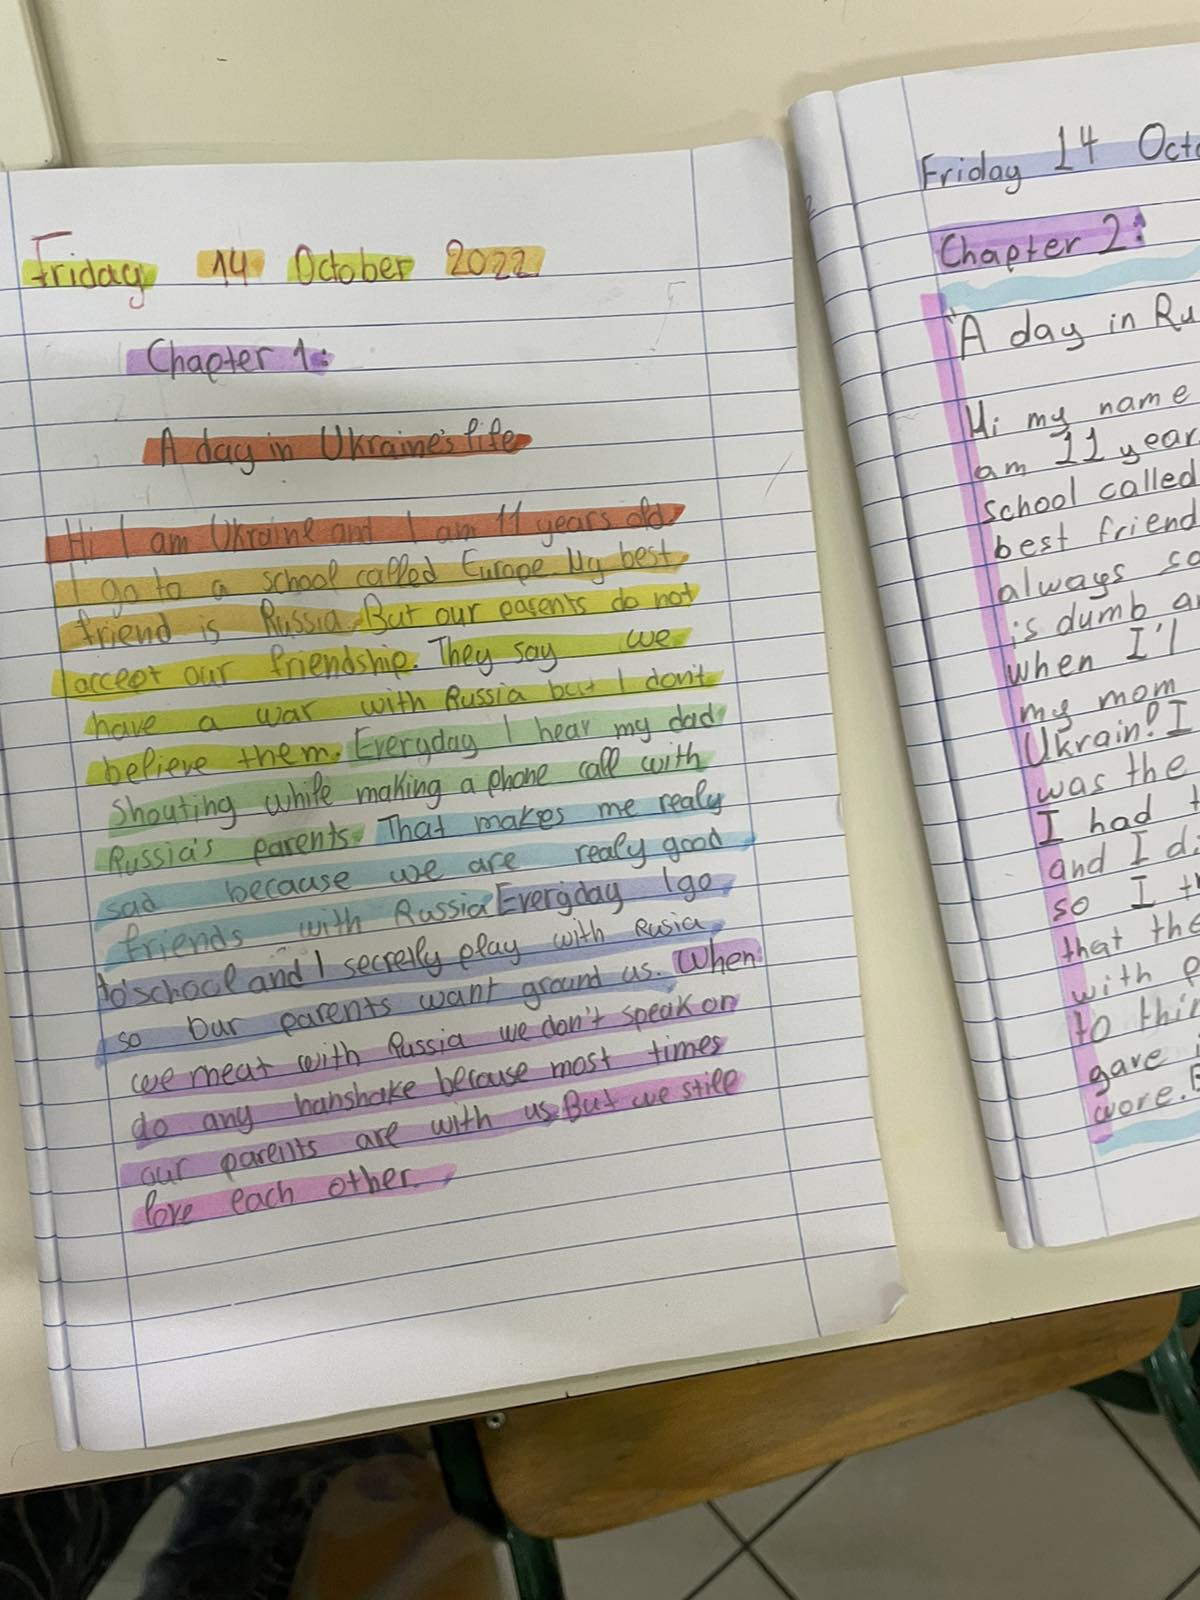 Friday 14 October 2022
Chapter 1:
A day in Ukraine's life
Hi I am Ukraine and I am 11 years old.
I go to a school called Europe. My best
friend is Russia. But our parents do not
accept our friendship. They say we
have a war with Russia but I don't
believe them. Everyday I hear my dad
shouting while making a phone call with
Russia's parents. That makes me realy
sad because we are realy good
friends with Russia Everyday I go
to school and I secretly play with Rusia,
so our parents want ground us. When
we meat with Russia we don't speak or
do any hanshake because most times
our parents are with us. But we still
love each other.
Friday 14 Octo
Chapter 2:
"A day in Ru
Hi my name
am 11 year
school called
best friend
always so
is dumb a
when I'l
my mom
Ukrain! I
was the
I had t
and I di
so I th
that the
with p
to thin
gave
wore.